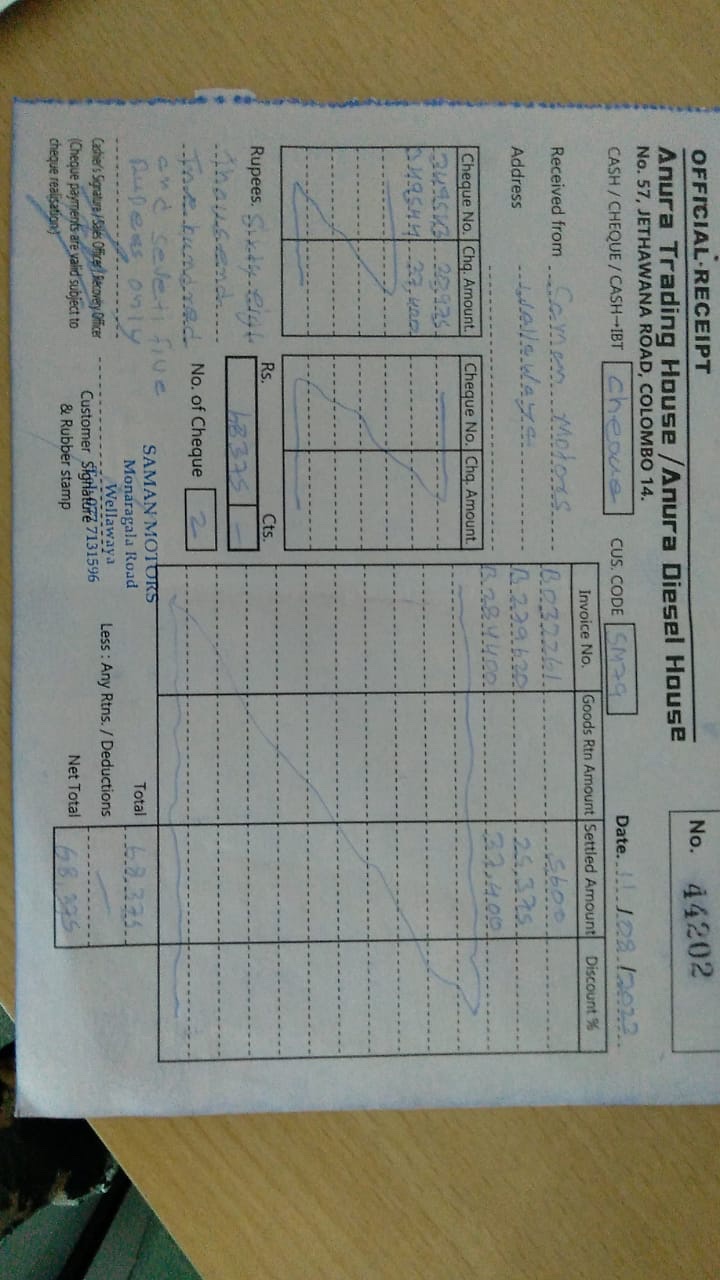 OFFICIAL-RECEIPT
No. 44202
Anura Trading House / Anura Diesel House
No. 57, JETHAWANA ROAD, COLOMBO 14.
CASH / CHEQUE / CASH→IBT Cheque CUS. CODE SM79 Date. 11 / 08 / 2022
Received from Saman Motors
Address Wallawaya
Cheque No. Chq. Amount. Cheque No. Chq. Amount.
30,975
37,400
Rupees. Sixty eight
Thousand
Three hundred
and seventi five
Rupees only
Rs. Cts.
68375 -
No. of Cheque 2
Invoice No. Goods Rtn Amount Settled Amount Discount %
B.032261 5600
B.279620 25,375
B.284400 37,400
Total 68,375
Less : Any Rtns. / Deductions
Net Total 68,375
Cashier's Signature / Sales Officer / Recovery Officer
(Cheque payments are valid subject to
cheque realisation)
SAMAN MOTORS
Monaragala Road
Wellawaya
7131596
Customer Signature
& Rubber stamp